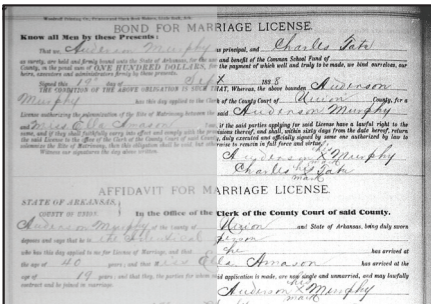 BOND FOR MARRIAGE LICENSE.
Know all Men by these Presents:
That we, Anderson Murphy as principal, and Charles Tate
as surety, are held and firmly bound unto the State of Arkansas, for the use and benefit of the Common School Fund of
County, in the penal sum of ONE HUNDRED DOLLARS, for the payment of which well and truly to be made, we bind ourselves, our
heirs, executors and administrators firmly by these presents.
Signed this 19" day of Sept 189
THE CONDITION OF THE ABOVE OBLIGATION IS SUCH THAT, Whereas, the above bounden Anderson
Murphy has this day applied to the Clerk of the County Court of Union County, for a
License authorizing the solemnization of the Rite of Matrimony between the said Anderson Murphy
and Miss Ella Amason Now if the said parties applying for said License have a lawful right to the
same, and they shall faithfully carry into effect and comply with the provisions thereof, and shall, within sixty days from the date hereof, return
said License to the office of the Clerk of the County Court of said County, duly executed and officially signed by some one authorized by law to
solemnize the Rite of Matrimony, then this obligation shall be void, but otherwise to remain in full force and virtue.
Witness our signatures the day above written.
Anderson X Murphy
Charles his X mark Tate
AFFIDAVIT FOR MARRIAGE LICENSE.
STATE OF ARKANSAS,
COUNTY OF UNION. In the Office of the Clerk of the County Court of said County.
Anderson Murphy of the county of Union and State of Arkansas, being duly sworn
deposes and says that he is the individual person
who has this day applied to for License of Marriage, and that he has arrived at
the age of 40 years; and that Miss Ella Amason has arrived at the
age of 19 years; and that they, the parties for whom said application is made, are now single and unmarried, and may lawfully
contract and be joined in marriage.
Anderson his X mark Murphy